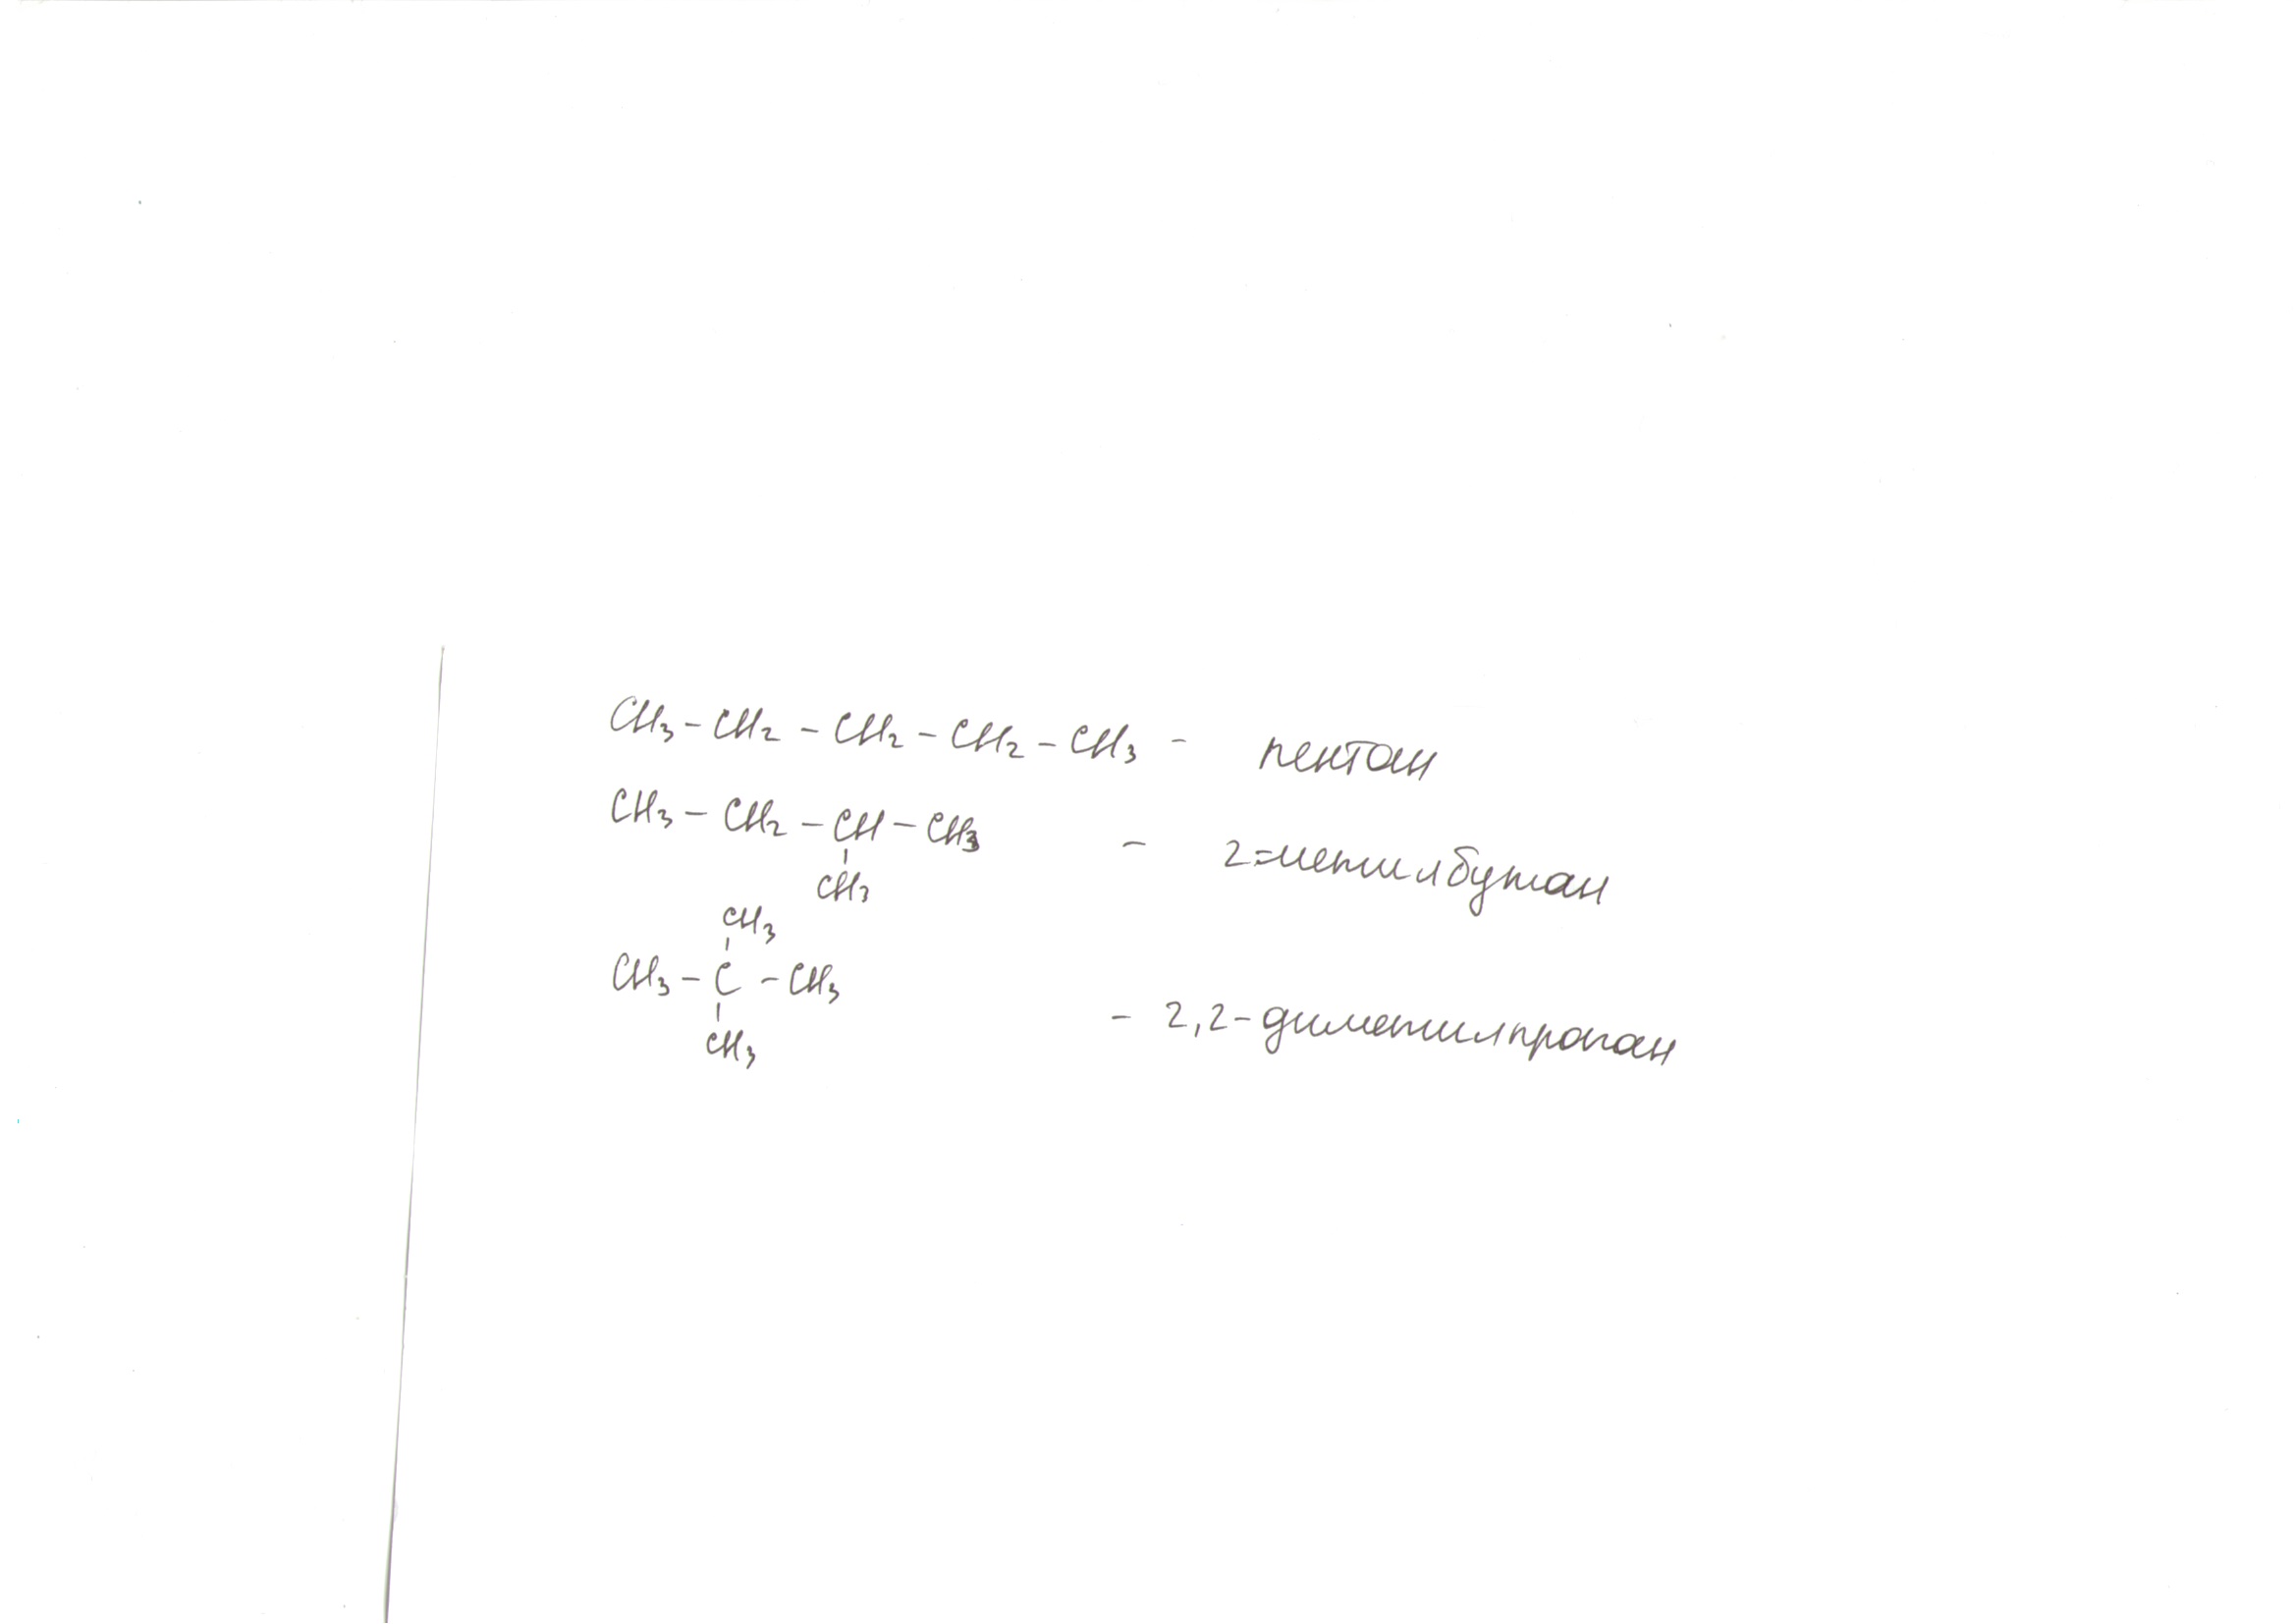 CH₃ - CH₂ - CH₂ - CH₂ - CH₃ - пентан
CH₃ - CH₂ - CH - CH₃ - 2=метилбутан
CH₃
CH₃
CH₃ - C - CH₃ - 2,2-диметилпропан
CH₃